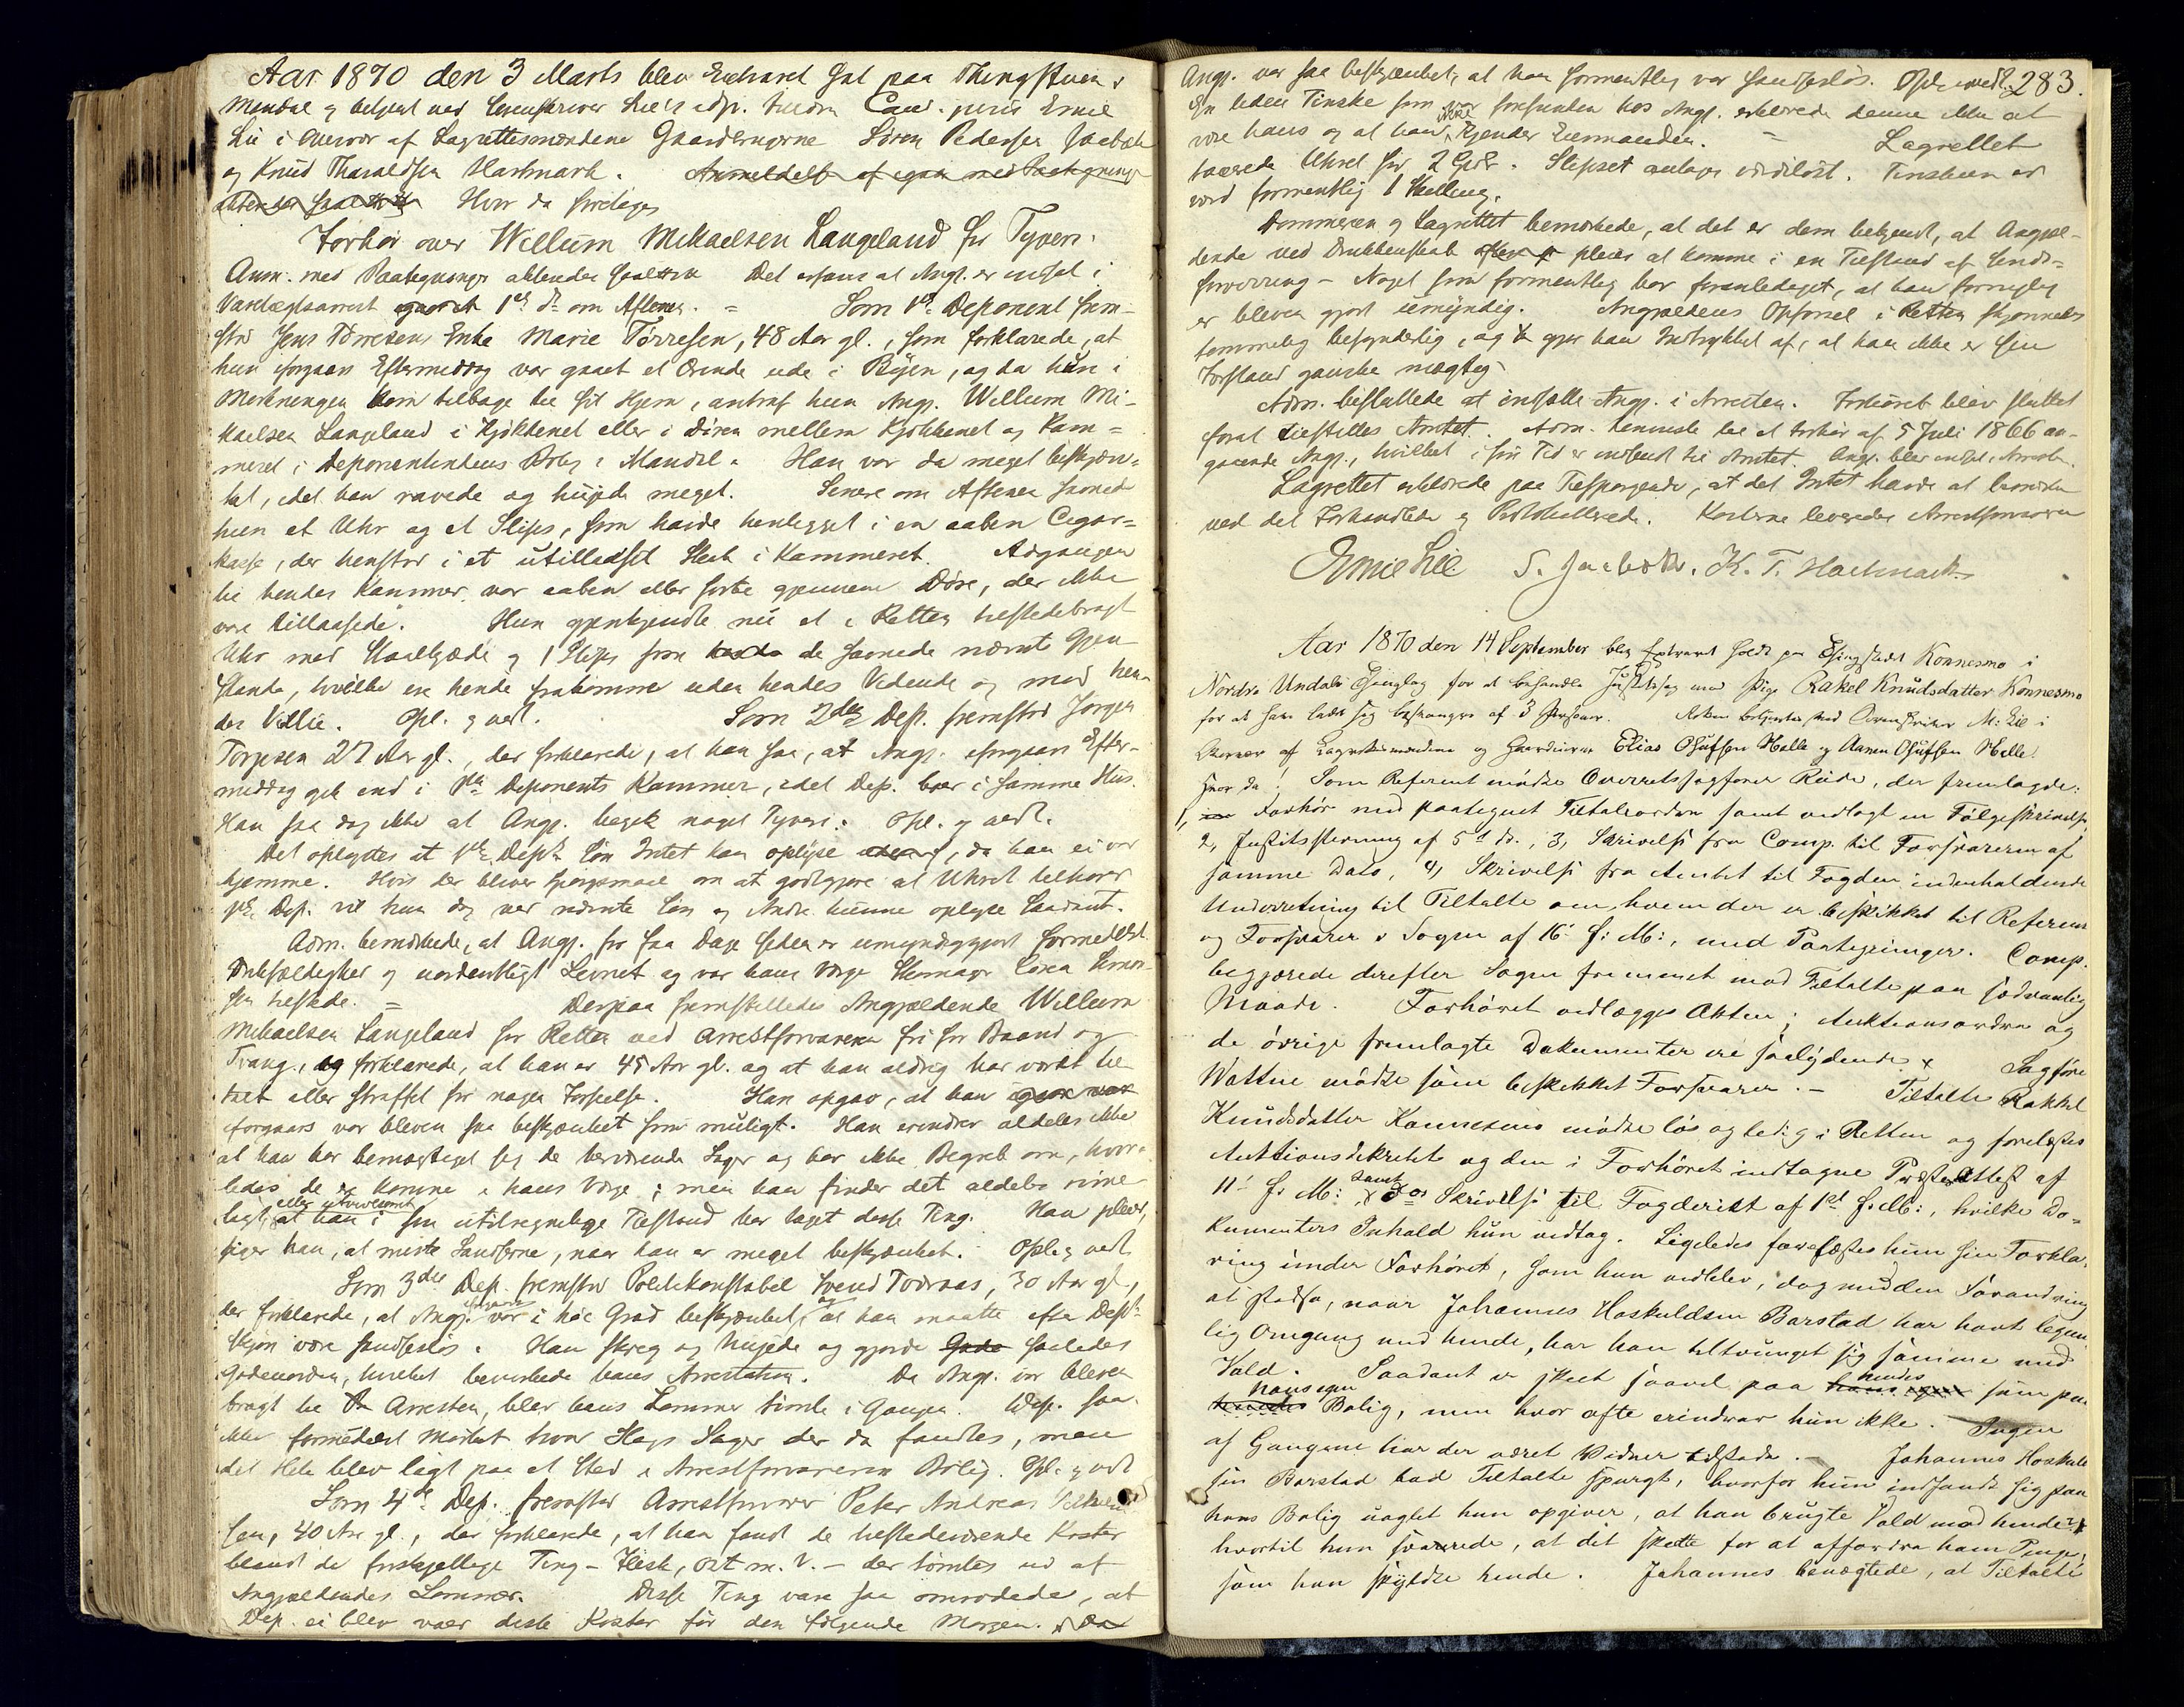 Aar 1870 den 3 Marts blev Extraret sat paa Thingstuen i
Mandal og betjent ved Sorenskriver Lie's adp. Cand. juris Emil
Lie i Overvær af Lagrettesmændene Gaardbrugerne Sören Pedersen Jaabæk
og Knud Tharaldsen Hartmark. Anmeldelse af igaar med Paategninger
Hvor da foretoges
Forhör over Willum Mikaelsen Langeland for Tyveri.
Anm. med Paategninger Det at Angj. er indsat i
Varetægtsarrest 1ste ds om Aftenen. = Som 1ste Deponent frem-
stod Jens Törresens Enke Marie Törresen, 48 Aar gl., som forklarede, at
hun iforgaars Eftermiddag var gaaet et Ærinde ude i Byen, og da hun i
Mørkningen kom tilbage til sit Hjem, antraf hun Angj. Willum Mi-
kaelsen Langeland i Kjökkenet eller i Dören mellem Kjökkenet og Kam-
meret i Deponentindens Bolig i Mandal. Han var da meget beskjæn-
ket, idet han ravede og hujede meget. Senere om Aftenen savnede
hun et Uhr og et Slips, som havde henligget i en aaben Cigar-
kasse, der henstod i et utillaaset Skab i Kammeret. Adgangen
til hendes Kammer var aaben eller førte gjennem Döre, der ikke
vare tillaasede. Hun gjenkjendte nu et i Retten tilstedebragt
Uhr med Staalkjæde og 1 Slips som de savnede nævnte Gjen-
stande, hvilke ere hende frakomne uden hendes Vidende og mod hen-
des Villie. Opl. & vedt. Som 2den Dep. fremstod Jörgen
Torjesen 27 Aar gl., der forklarede, at han saa, at Angj. iforgaars Efter-
middag gik ind i 1ste Deponents Kammer, idet Dep. boer i samme Hus.
Han saa dog ikke at Angj. begik noget Tyveri. Opl. & vedt.
Det oplystes at 1ste Dept. Sön Intet kan oplyse, da han ei var
hjemme. Hvis der bliver Spörgsmaal om at godtgjøre at Uhret tilhører
1ste Dep. vil hun dog ved nævnte Sön og Andre kunne oplyse Saadant.
Adm. bemærkede, at Angj. for faa Dage siden er umyndiggjort formedelst
Ödselagtighed og uordentligt Levnet og var hans Værge Skomager
sen tilstede. = Derpaa fremstilledes Angjældende Willum
Mikaelsen Langeland for Retten ved Arrestforvareren fri for Baand og
Tvang, og forklarede, at han er 45 Aar gl. og at han aldrig har været til-
talt eller straffet for nogen Forseelse. Han opgav, at han
iforgaars var bleven saa beskjænket som muligt. Han erindrer aldeles ikke
at han har bemægtiget sig de herværende Sager og har ikke Begreb om, hvor-
ledes de er komne i hans Værge; men han finder det aldeles rime-
eller utvivlsomt
ligt, at han i sin utilregnelige Tilstand har taget disse Ting. Han pleier,
siger han, at miste Sandserne, naar han er meget beskjænket. Opl. & vedt.
Som 3die Dep. fremstod Politikonstabel Svend Todnæs, 30 Aar gl.,
der forklarede, at Angj. iforgaars var i höi Grad beskjænket, og at han maatte efter Depts
Skjön være sandseslös. Han skreg og hujede og gjorde saaledes
Gadeuorden, hvilket bevirkede hans Arrestation. Da Angj. var bleven
bragt til Arresten, blev hans Lommer tömte i Gangen. Dep. saa
ikke formedelst Mörket hvad Slags Sager der da fandtes, men
det Hele blev lagt paa et Sted i Arrestforvarerens Bolig. Opl. & vedt
Som 4de Dep. fremstod Arrestforvarer Peter Andreas
sen, 40 Aar gl., der forklarede, at han fandt de tilstedeværende Koster
blandt de forskjellige Ting – Flesk, Ost m.V. – der tömtes ud af
Angjældendes Lommer. Disse Ting vare saa omrodede, at
Dep. ei blev vaer disse Koster för den fölgende Morgen. Da
283.
Angj. var saa beskjænket, at han formentlig var sandseslös. Opl. & vedt.
En liden Tinske som var forefunden hos Angj. erklærede denne ikke at
være hans og at han ikke kjender Eiermanden. – Lagrettet
taxerede Uhret for 2 Spdr. Slipset antages værdilöst. Tinsken er
værd formentlig 1 Skilling.
Dommeren og Lagrettet bemærkede, at det er dem bekjendt, at Angjæl-
dende ved Drukkenskab pleier at komme i en Tilstand af Sinds-
forvirring – Noget som formentlig har foranlediget, at han fornylig
er bleven gjort umyndig. Angjældens Opförsel i Retten skjønnedes
temmelig besynderlig, og gjör han Indtrykket af, at han ikke er sin
Forstand ganske mægtig.
Adm. besluttede at indsætte Angj. i Arresten. Forhöret blev sluttet
forat tilstilles Amtet. Adm. henviste til et Forhör af 5 Juli 1866 an-
gaaende Angj., hvilket i sin Tid er indsendt til Amtet. Angj. blev indsat i Arresten.
Lagrettet erklærede paa Tilspørgende, at det Intet havde at bemærke
ved det Forhandlede og Protokollerede. Kosterne leveredes Arrestforvareren
Emil Lie S. Jaabæk. K. T. Hartmark
Aar 1870 den 14 September blev Extraret holdt paa Thingstedet Konnesmo i
Nordre Undals Thinglag for at behandle Justitssag mod Pige Rakel Knudsdatter Konnesmo
for at have ladet sig besvangre af 3 Personer. Retten betjentes ved Sorenskriver M. Lie i
Overvær af Lagrettesmændene og Gaardeierne Elias Olufsen Helle og Aanen Olufsen Helle.
Hvor da! Som Referent mødte Overretssagfører Rude, der fremlagde:
1, Forhör med paategnet Tiltaleordre samt vedlagt en Fölgeskrivelse,
2, Justitsstevning af 5te ds., 3, Skrivelse fra Comp. til Forsvareren af
samme Dato, 4, Skrivelse fra Amtet til Fogden indeholdende
Underretning til Tiltalte om, hvem der er beskikket til Referent
og Forsvarer i Sagen af 16de f: M:, med Paategninger. Comp.
begjærede derefter Sagen fremmet mod Tiltalte paa sædvanlig
Maade. Forhöret vedlægges Akten; Auktionsordren og
de övrige fremlagte Dokumenter ere saalydende. Sagförer
Wattne mødte som beskikket Forsvarer. – Tiltalte Rakkel
Knudsdatter Konnesmo mødte lös og ledig i Retten og forelæstes
Auktionsdekretet og den i Forhöret indtagne Præsteattest af
11te f: M: samt Skrivelse til Fogderiet af 1ste f: M:, hvilke Do-
kumenters Inhold hun vedtog. Ligeledes forelæstes hun sin Forkla-
ring under Forhöret, som hun vedblev, dog med den Forandring
at stadse, naar Johannes Haskuldsen Barstad har havt legem-
lig Omgang med hende, har han tiltvunget sig samme med
Vold. Saadant er skeet saavel paa hendes som paa
hans egen Bolig, men hvor ofte erindrer hun ikke. Ingen
af Gangene har der været Vidner tilstede. – Johannes Haskuld-
sen Barstad bad Tiltalte spurgt, hvorfor hun indfandt sig paa
hans Bolig uagtet hun opgiver, at han brugte Vold mod hende,
hvortil hun svarede, at det skete for at affordre ham Penge,
som han skyldte hende. Johannes benægtede, at Tiltalte